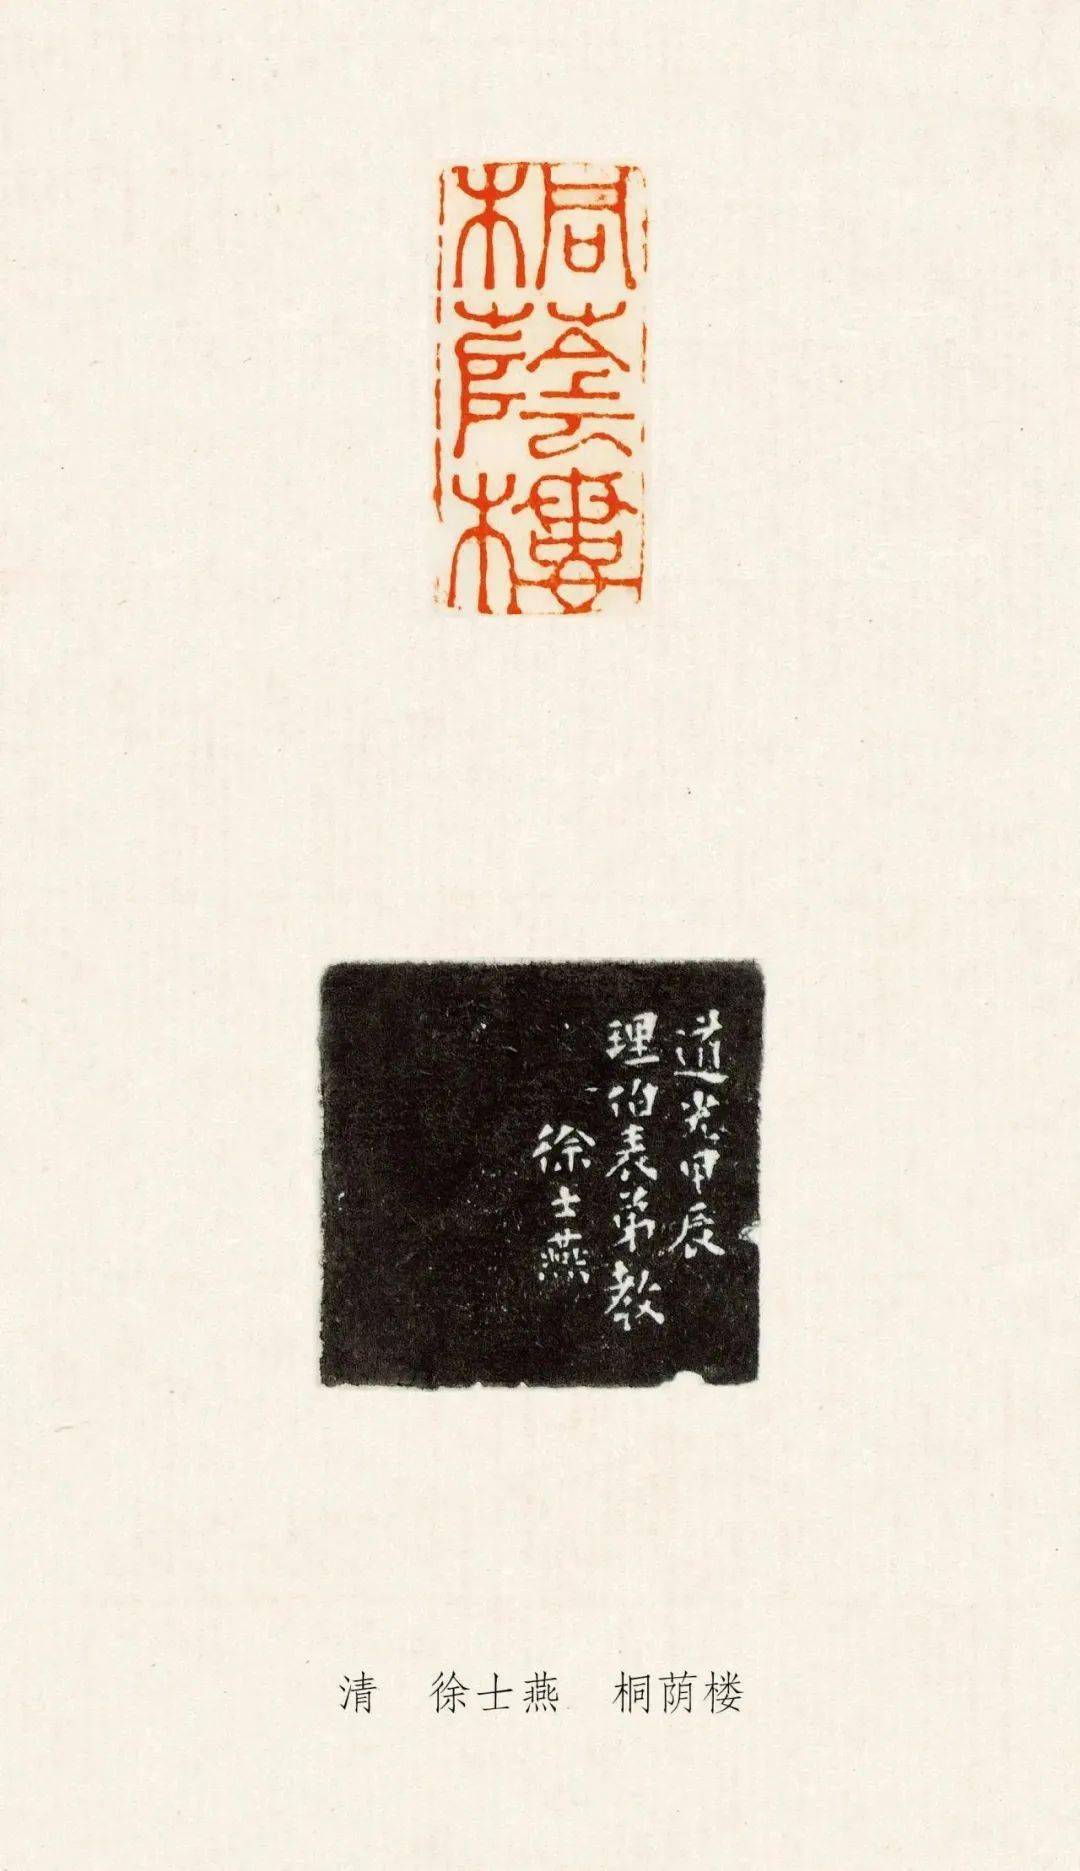 桐蔭樓
道光甲辰
理伯表弟教
徐士燕
清　徐士燕　桐荫楼